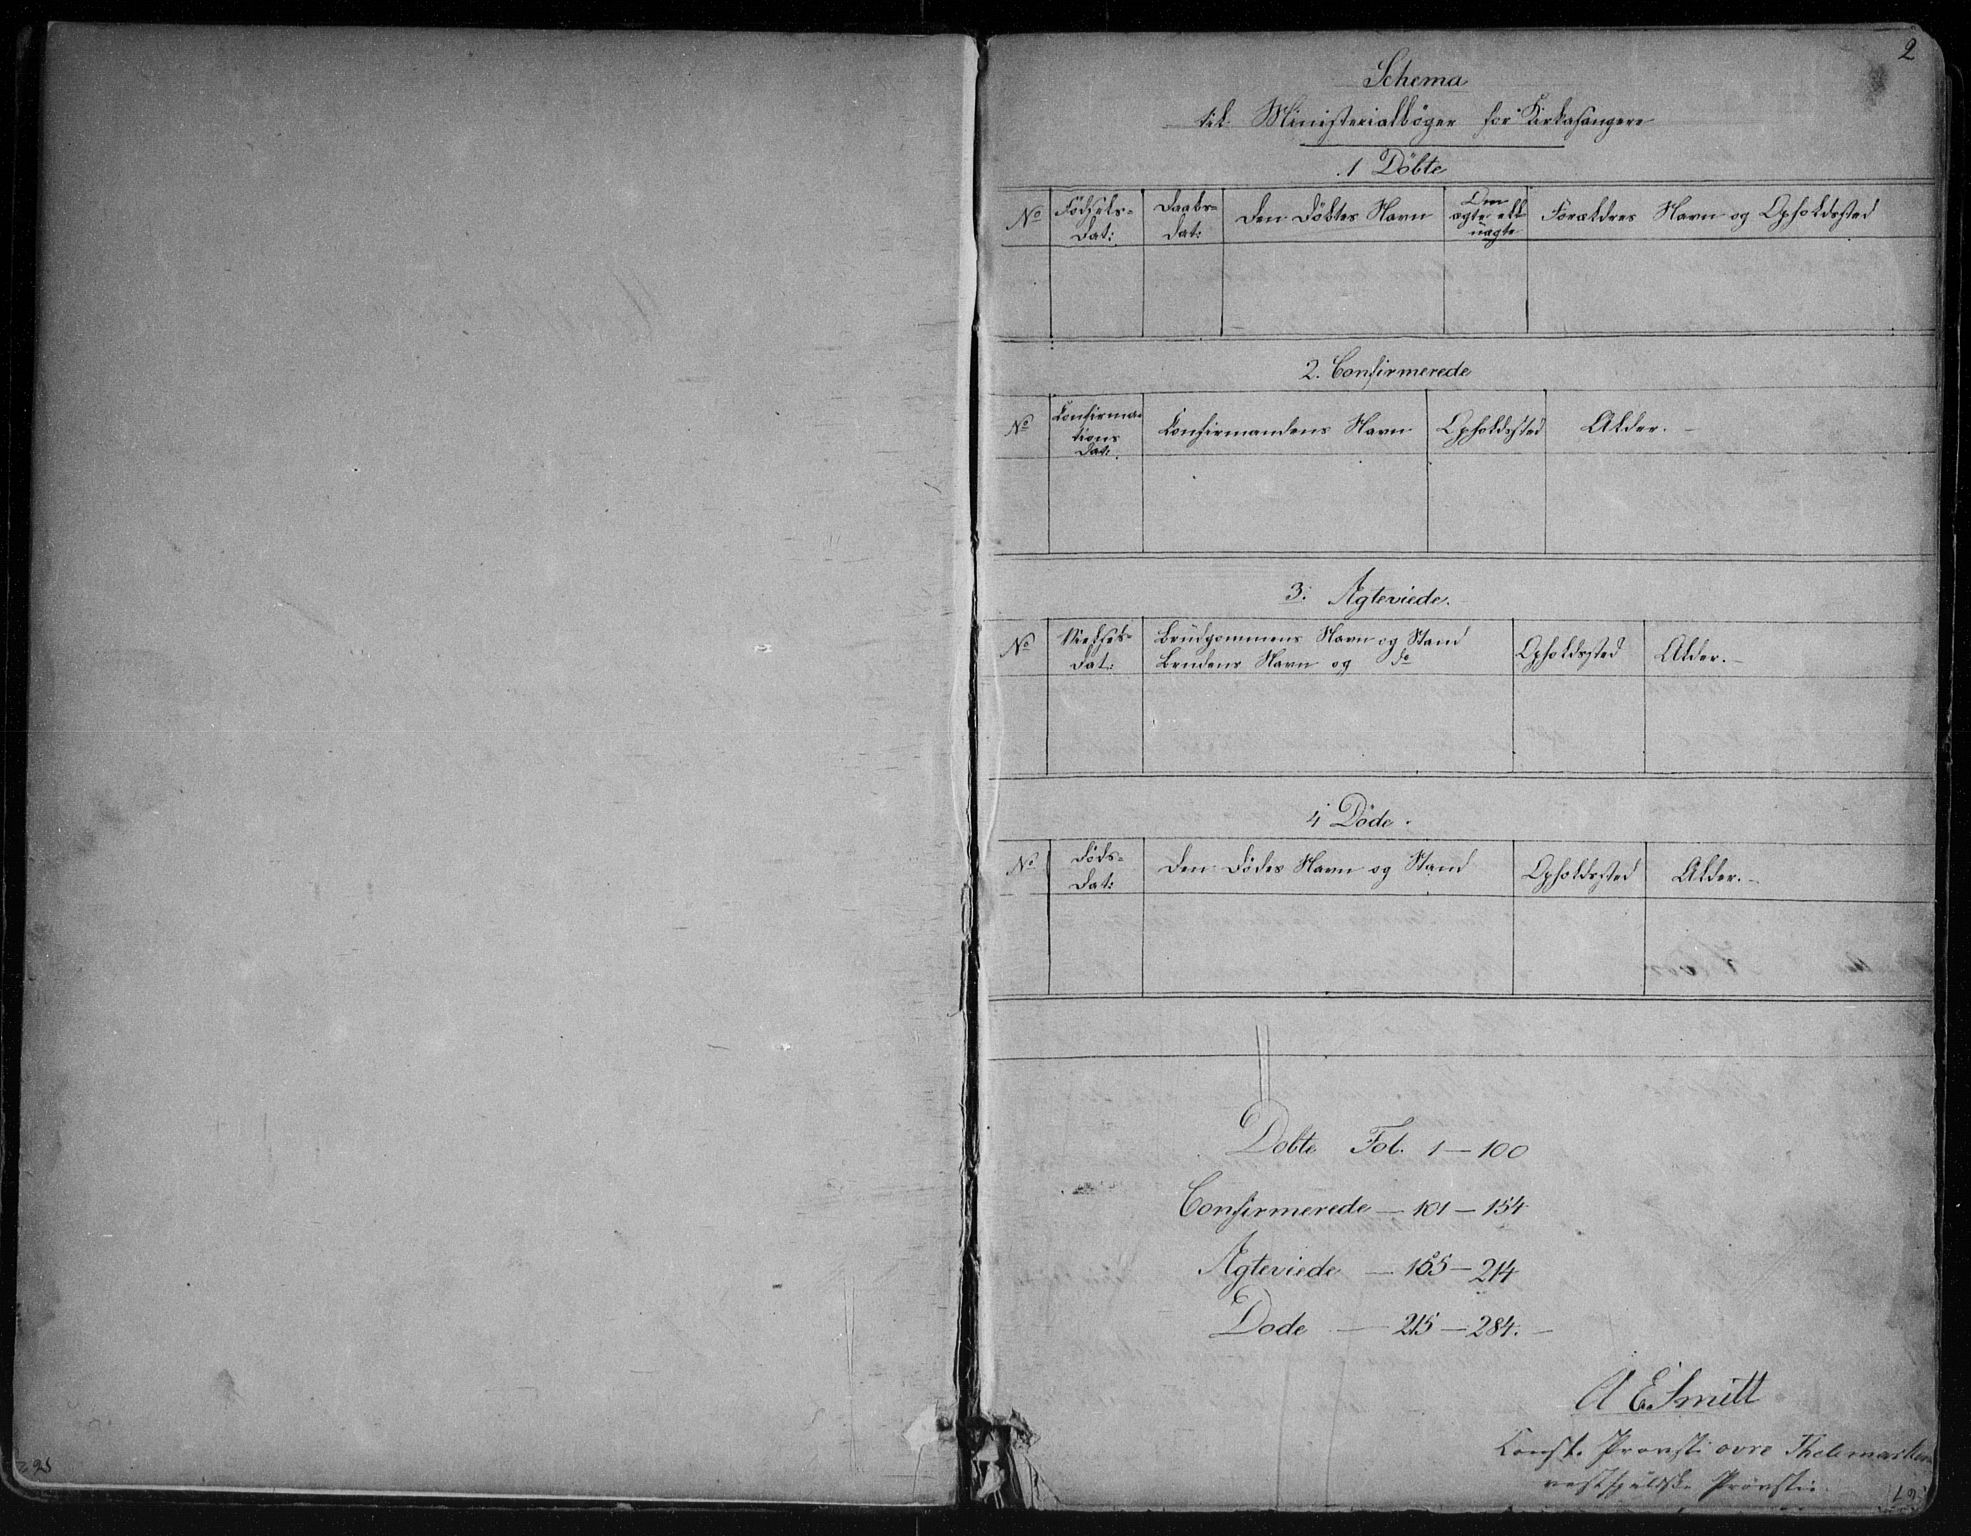 2
Schema
til Ministerialbøger for Kirkesangere
1 Döbte
No
Födsels-
Dat:
Daabs-
Dat:
Den Döbtes Navn
Om
ægte ell
uægte
Forældres Navn og Opholdssted
2. Confirmerede
No
Confirma-
tions
Dat.
Confirmandens Navn
Opholdssted
Alder.
3. Ægteviede.
No
Vielses-
Dat:
Brudgommens Navn og Stand
Brudens Navn og do
Opholdssted
Alder.
4 Döde.
No
Döds-
Dat:
Den Dödes Navn og Stand
Opholdssted
Alder.
Döbte Fol. 1 — 100
Confirmerede — 101 — 154
Ægteviede — 155 — 214
Döde — 215 — 284.
A E Smitt
Const. Provst i øvre Thelemarken
vestfjeldske Provsti